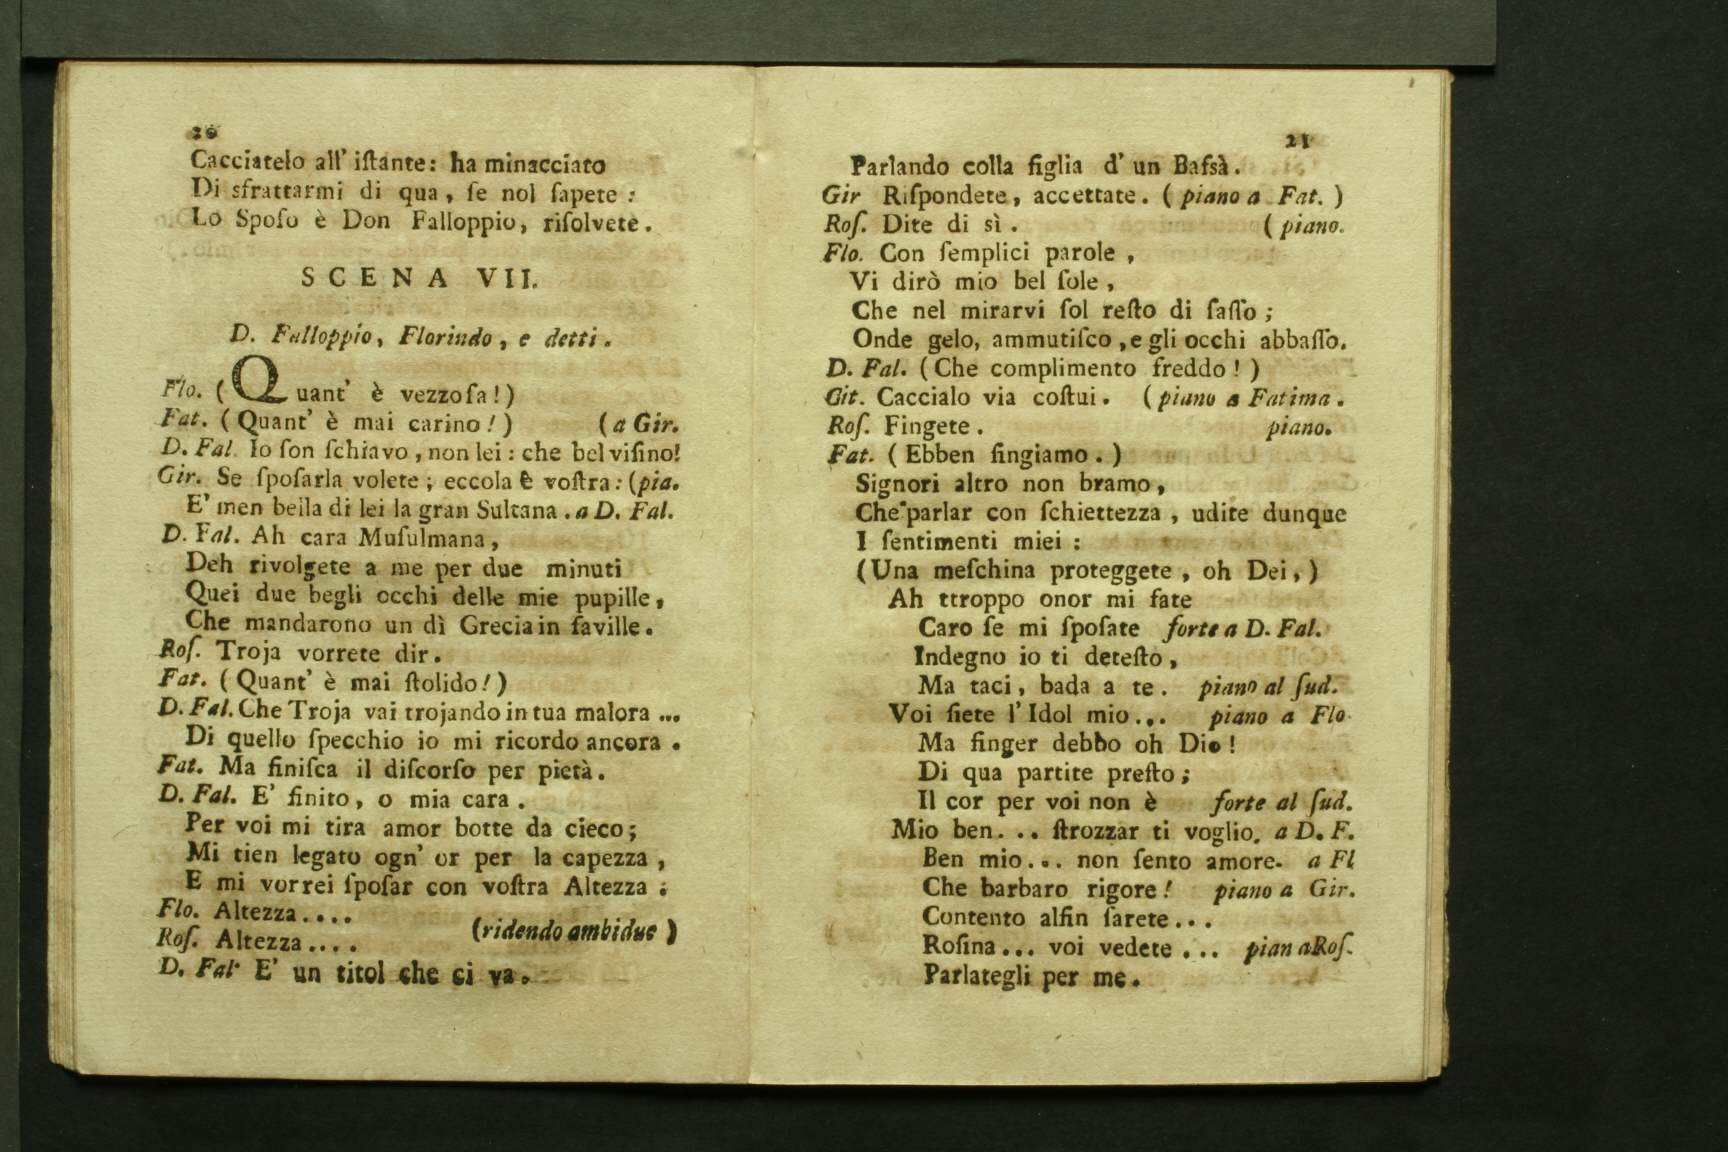 20
Cacciatelo all' iſtante: ha minacciato
Di sfrattarmi di qua, ſe nol ſapete:
Lo Spoſo è Don Falloppio, riſolvete.
SCENA VII.
D. Falloppio, Florindo, e detti.
Flo. (Quant' è vezzoſa!)
Fat. (Quant' è mai carino!) (a Gir.
D. Fal. Io ſon ſchiavo, non lei: che bel viſino!
Gir. Se ſpoſarla volete; eccola è voſtra: (pia.
E' men bella di lei la gran Sultana. a D. Fal.
D. Fal. Ah cara Muſulmana,
Deh rivolgete a me per due minuti
Quei due begli occhi delle mie pupille,
Che mandarono un dì Grecia in faville.
Roſ. Troja vorrete dir.
Fat. (Quant' è mai ſtolido!)
D. Fal. Che Troja vai trojando in tua malora ...
Di quello ſpecchio io mi ricordo ancora.
Fat. Ma finiſca il diſcorſo per pietà.
D. Fal. E' finito, o mia cara.
Per voi mi tira amor botte da cieco;
Mi tien legato ogn' or per la capezza,
E mi vorrei ſpoſar con voſtra Altezza.
Flo. Altezza....
Roſ. Altezza.... (ridendo ambidue)
D. Fal. E' un titol che ci va.
21
Parlando colla figlia d' un Baſsà.
Gir Riſpondete, accettate. (piano a Fat.)
Roſ. Dite di sì. (piano.
Flo. Con ſemplici parole,
Vi dirò mio bel ſole,
Che nel mirarvi ſol reſto di ſaſſo;
Onde gelo, ammutiſco, e gli occhi abbaſſo.
D. Fal. (Che complimento freddo!)
Git. Caccialo via coſtui. (piano a Fatima.
Roſ. Fingete. piano.
Fat. (Ebben fingiamo.)
Signori altro non bramo,
Che parlar con ſchiettezza, udite dunque
I ſentimenti miei:
(Una meſchina proteggete, oh Dei,)
Ah ttroppo onor mi fate
Caro ſe mi ſpoſate forte a D. Fal.
Indegno io ti deteſto,
Ma taci, bada a te. piano al ſud.
Voi ſiete l' Idol mio... piano a Flo
Ma finger debbo oh Dio!
Di qua partite preſto;
Il cor per voi non è forte al ſud.
Mio ben... ſtrozzar ti voglio. a D. F.
Ben mio... non ſento amore. a Fl
Che barbaro rigore! piano a Gir.
Contento alfin ſarete...
Roſina... voi vedete ... pian aRoſ.
Parlategli per me.